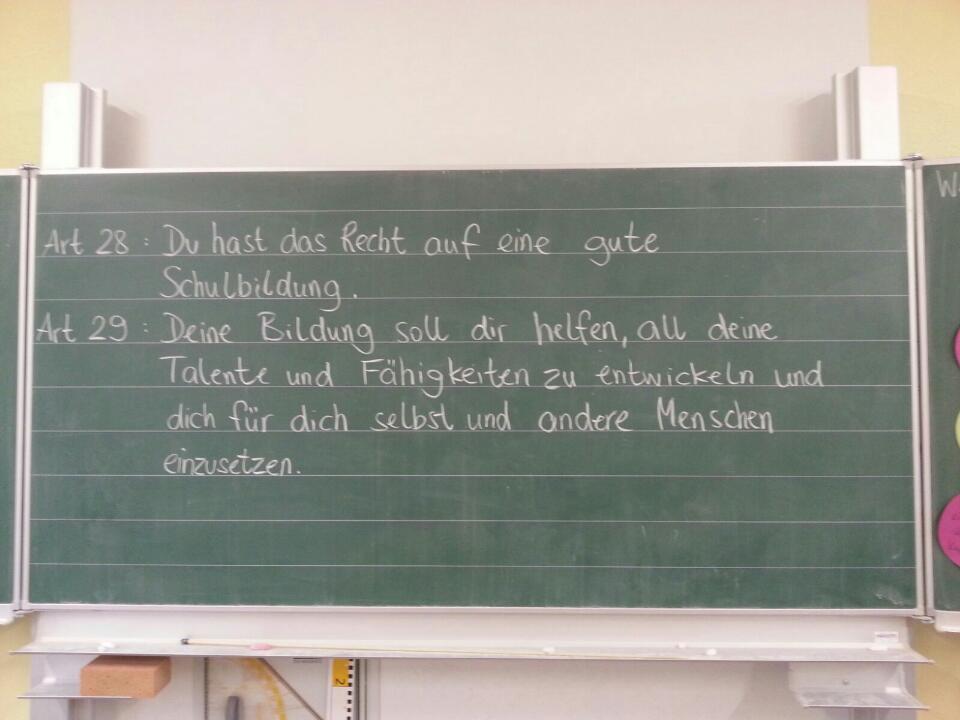 Art 28 : Du hast das Recht auf eine gute
Schulbildung.
Art 29 : Deine Bildung soll dir helfen, all deine
Talente und Fähigkeiten zu entwickeln und
dich für dich selbst und andere Menschen
einzusetzen.
2